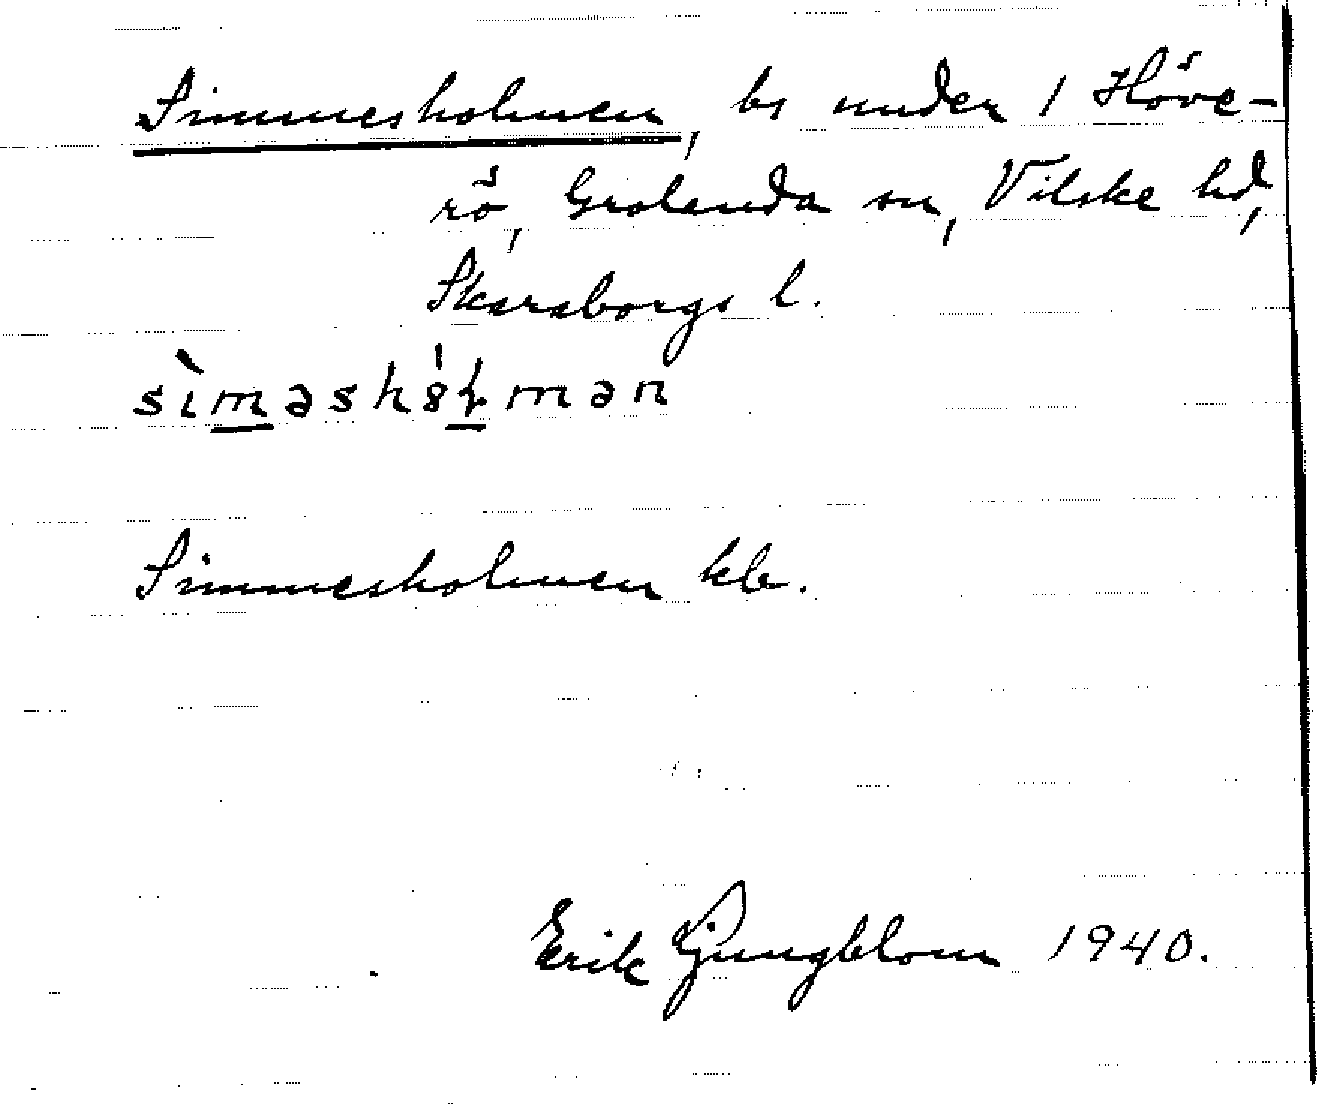 Simmesholmen, bs under 1 Höve-
rö, Grolanda sn, Vilske hd,
Skaraborgs l.
sìməshȯ́ɫmən
Simmesholmen kb.
Erik Ljungblom 1940.